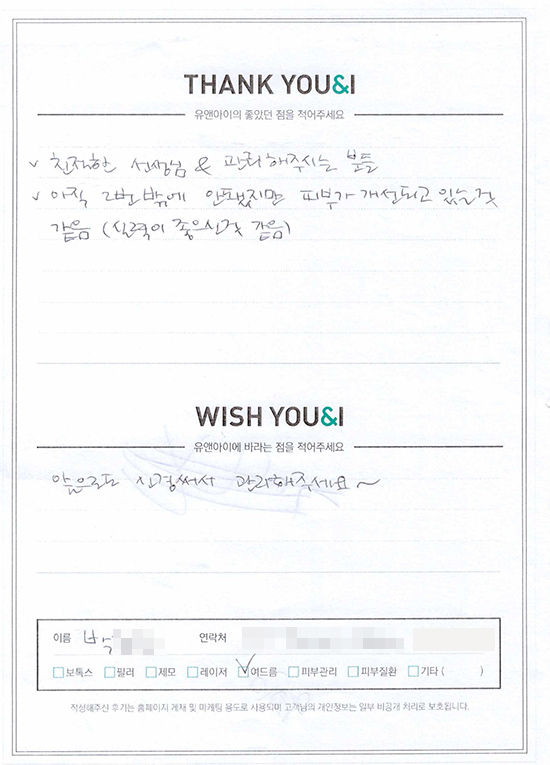 THANK YOU&I
유앤아이의 좋았던 점을 적어주세요
✓ 친절한 선생님 & 관리해주시는 분들
✓ 아직 2번밖에 안됐지만 피부가 개선되고 있는것
같음 (실력이 좋으신것 같음)
WISH YOU&I
유앤아이에 바라는 점을 적어주세요
앞으로도 신경써서 관리해주세요~
이름 박 연락처
□보톡스 □필러 □제모 □레이저 ☑여드름 □피부관리 □피부질환 □기타 ( )
작성해주신 후기는 홈페이지 게재 및 마케팅 용도로 사용되며 고객님의 개인정보는 일부 비공개 처리로 보호됩니다.